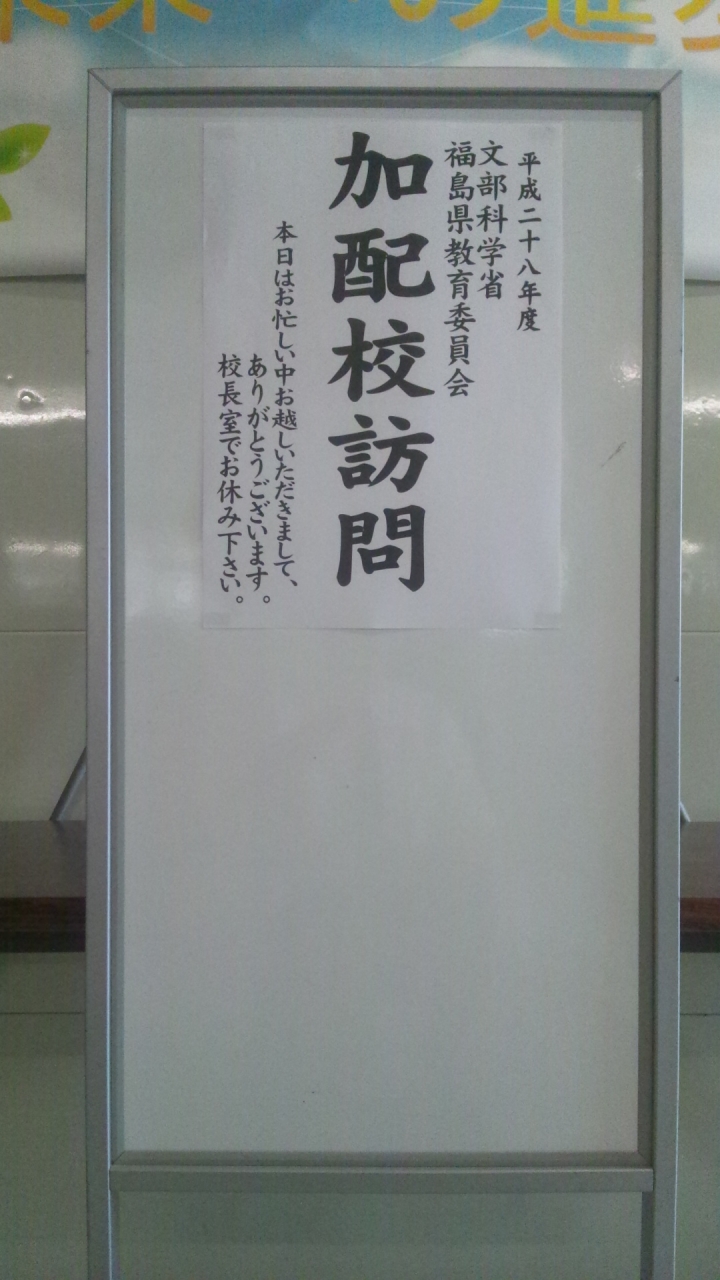 平成二十八年度
文部科学省
福島県教育委員会
加配校訪問
本日はお忙しい中お越しいただきまして、
ありがとうございます。
校長室でお休み下さい。